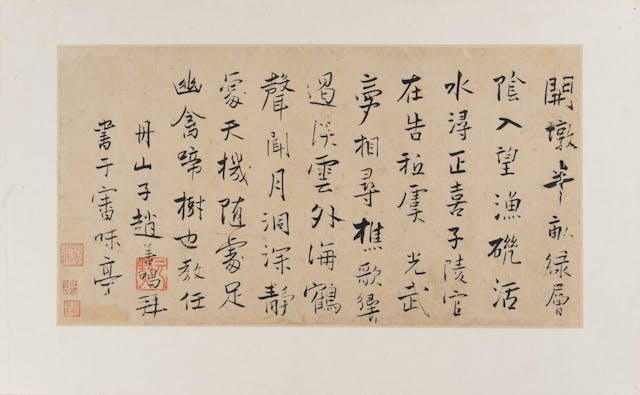 開墩半畝緑層
陰入望漁磯活
水潯正喜子陵官
在告虞光武
夢相尋樵歌響
過溪雲外海鶴
聲聞月洞深靜
處天機随處足
幽禽啼樹也教任
丹山子趙善鳴拜
書于審味亭